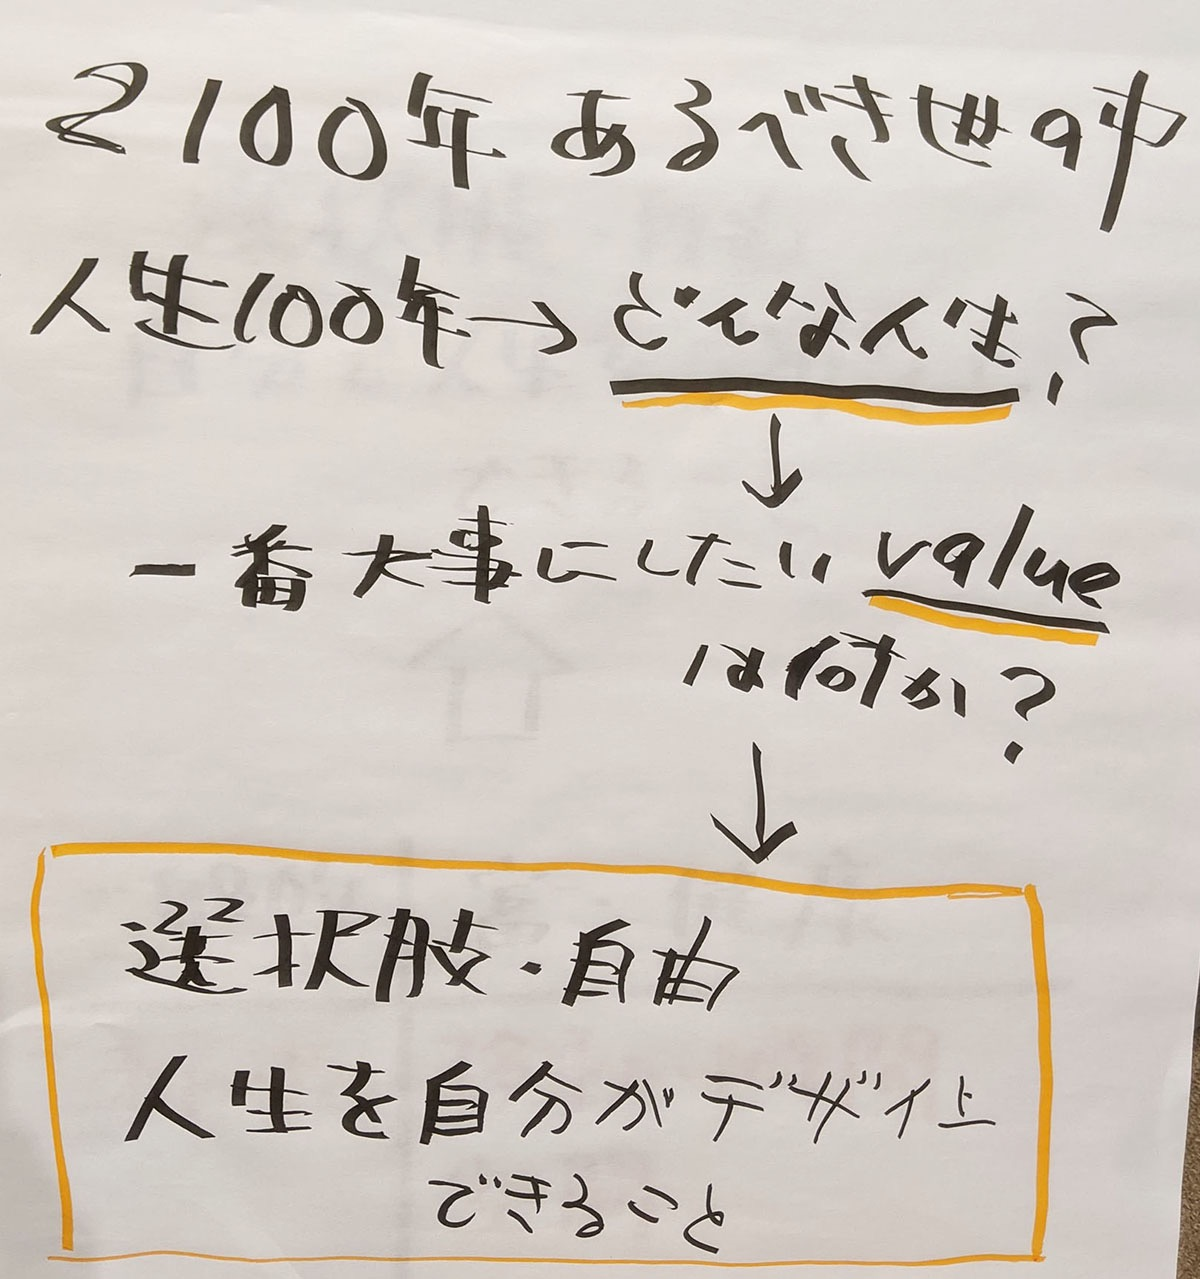 2100年 あるべき世の中
人生100年→どんな人生?
↓
一番大事にしたい value
は何か?
↓
選択肢・自由
人生を自分がデザイン
できること